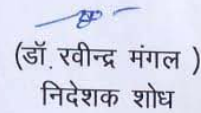 (डॉ. रवीन्द्र मंगल )
निदेशक शोध